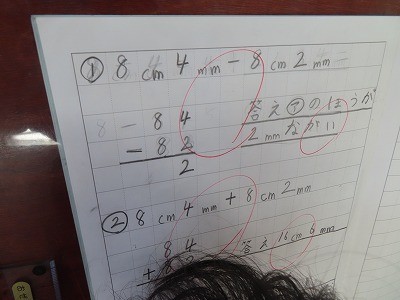 ① 8cm4mm-8cm2mm=
8-84
答え㋐のほうが
-82
2mmながい
2
② 8cm4mm+8cm2mm
84
答え16cm6mm
+8